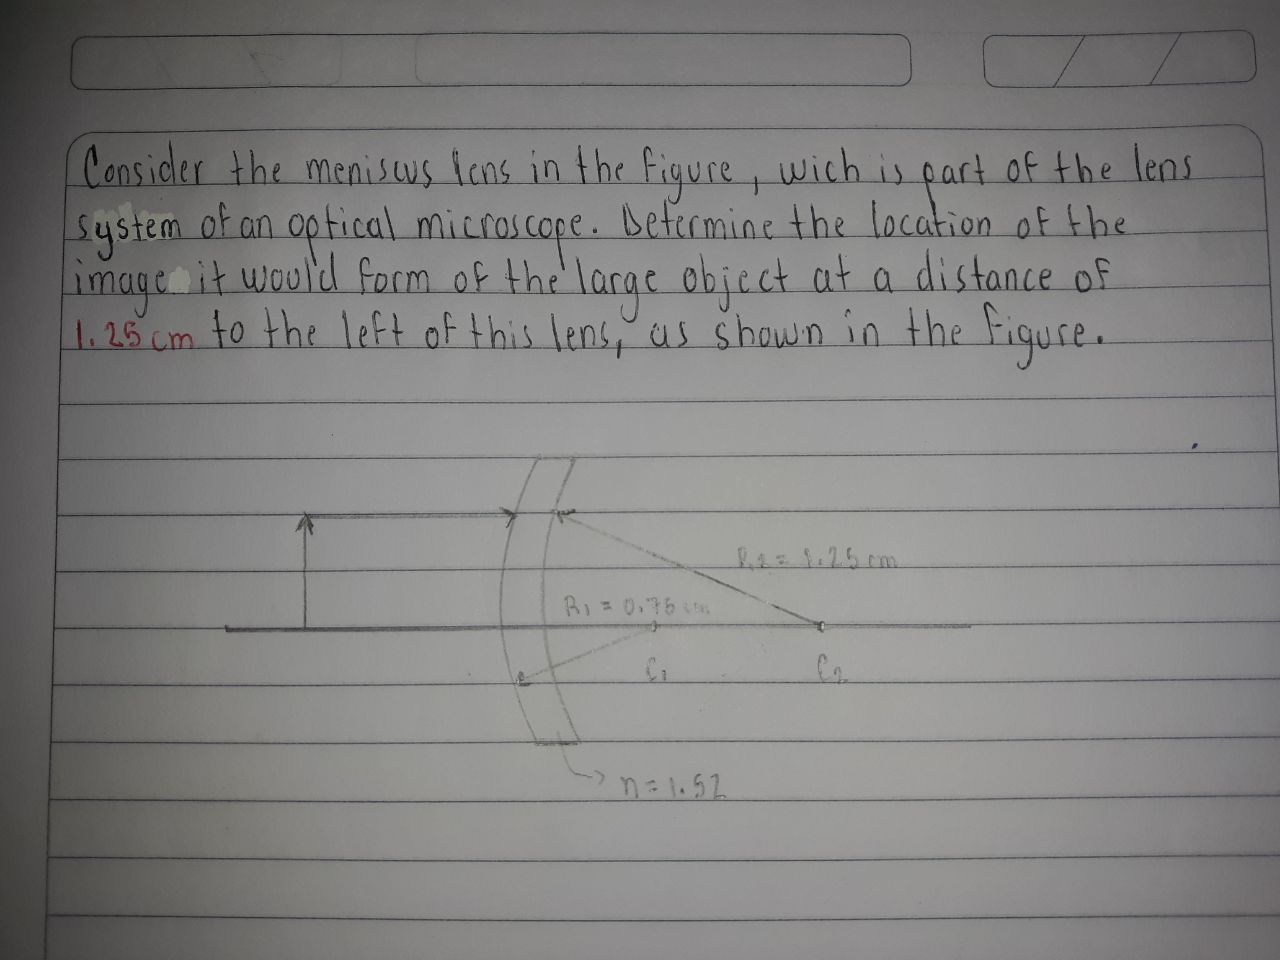 Consider the meniscus lens in the figure, wich is part of the lens
system of an optical microscope. Determine the location of the
image it would form of the large object at a distance of
1.25 cm to the left of this lens, as shown in the figure.
R2 = 1.25 cm
R1 = 0.75 cm
C1 C2
n = 1.52